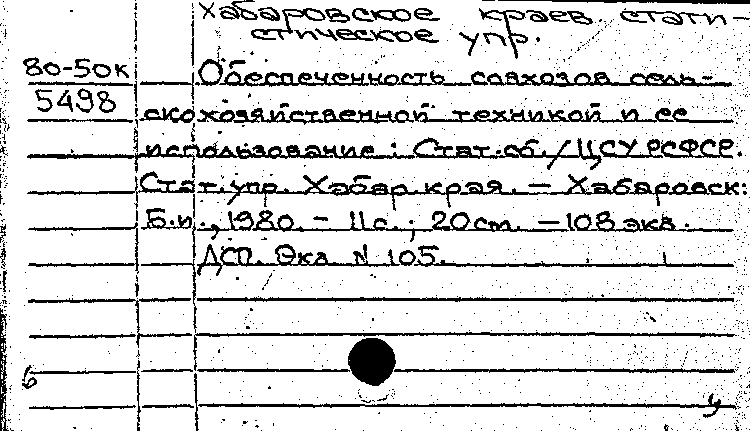 Хабаровское краев. стати-
стическое упр.
80-50к Обеспеченность совхозов сель-
5498 скохозяйственной техникой и ее
использование: Стат. сб. / ЦСУ РСФСР.
Стат. упр. Хабар. края. — Хабаровск:
Б.и., 1980. - 11 с.; 20 см. — 108 экз.
ДСП. Экз N 105.
б
у